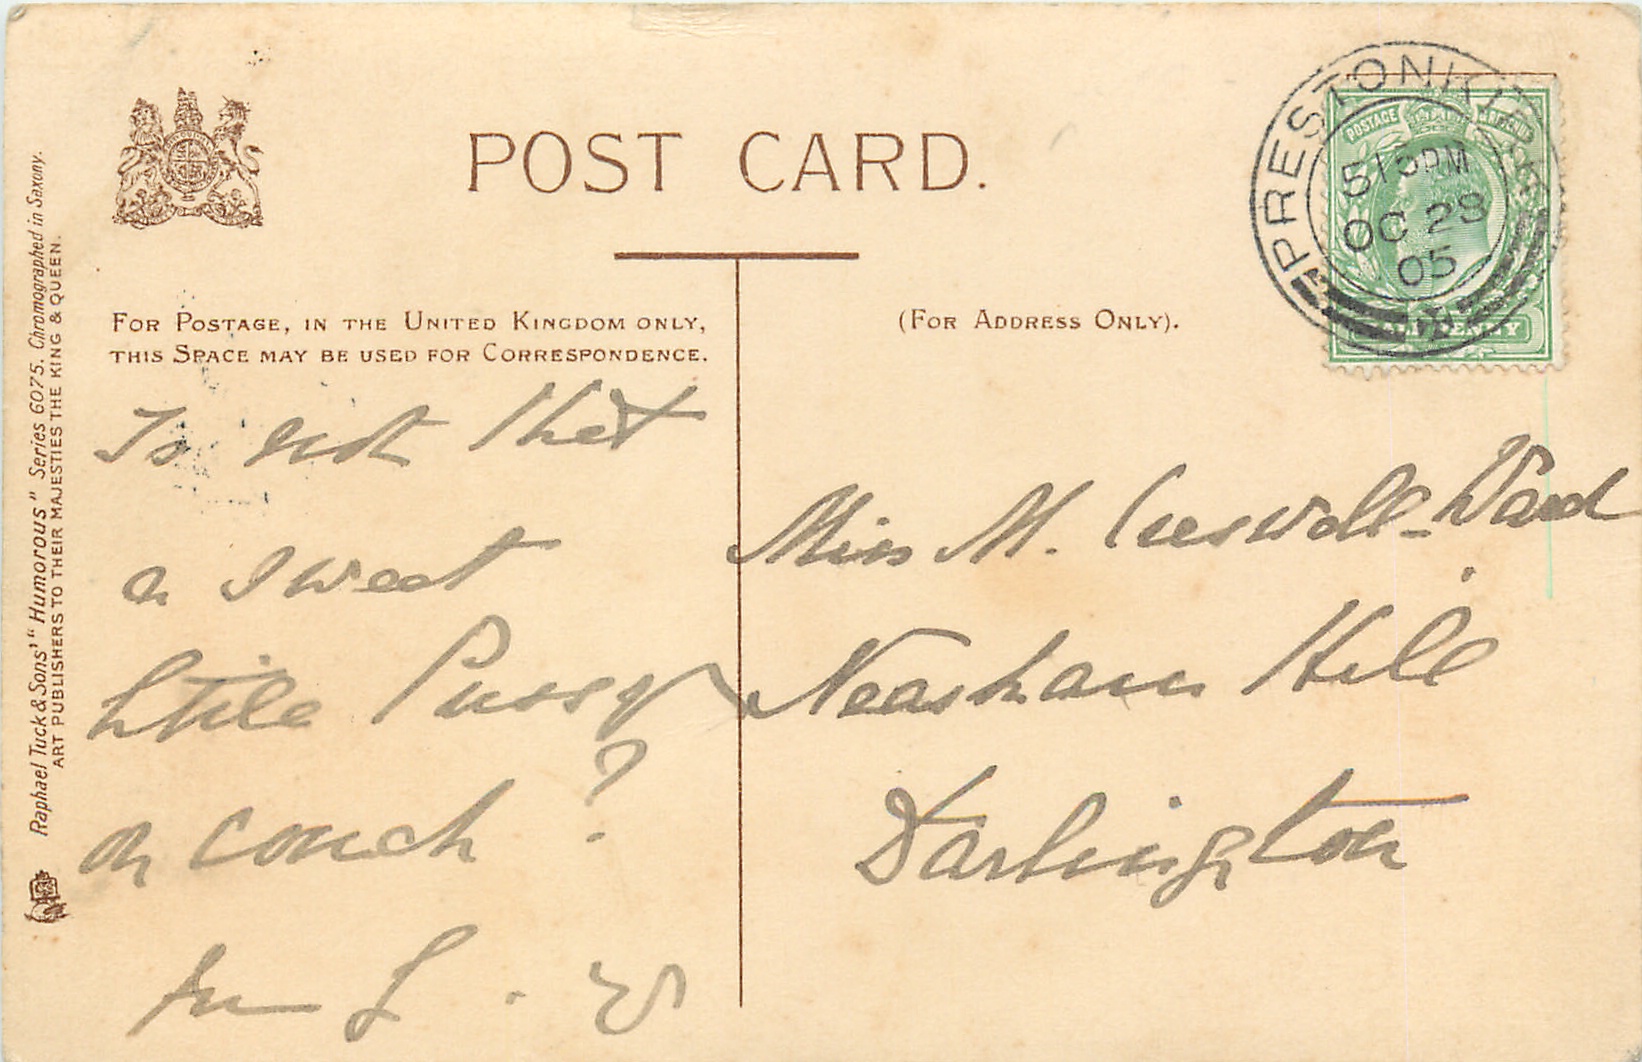 POST CARD.
FOR POSTAGE, IN THE UNITED KINGDOM ONLY,
THIS SPACE MAY BE USED FOR CORRESPONDENCE.
(FOR ADDRESS ONLY).
Raphael Tuck & Sons' "Humorous" Series 6075. Chromographed in Saxony.
ART PUBLISHERS TO THEIR MAJESTIES THE KING & QUEEN.
PRESTON
5 15 PM
OC 28
05
POSTAGE
Is not that
a sweet
little Pussy
on couch?
Miss M. Creswell-Ward
Neasham Hill
Darlington